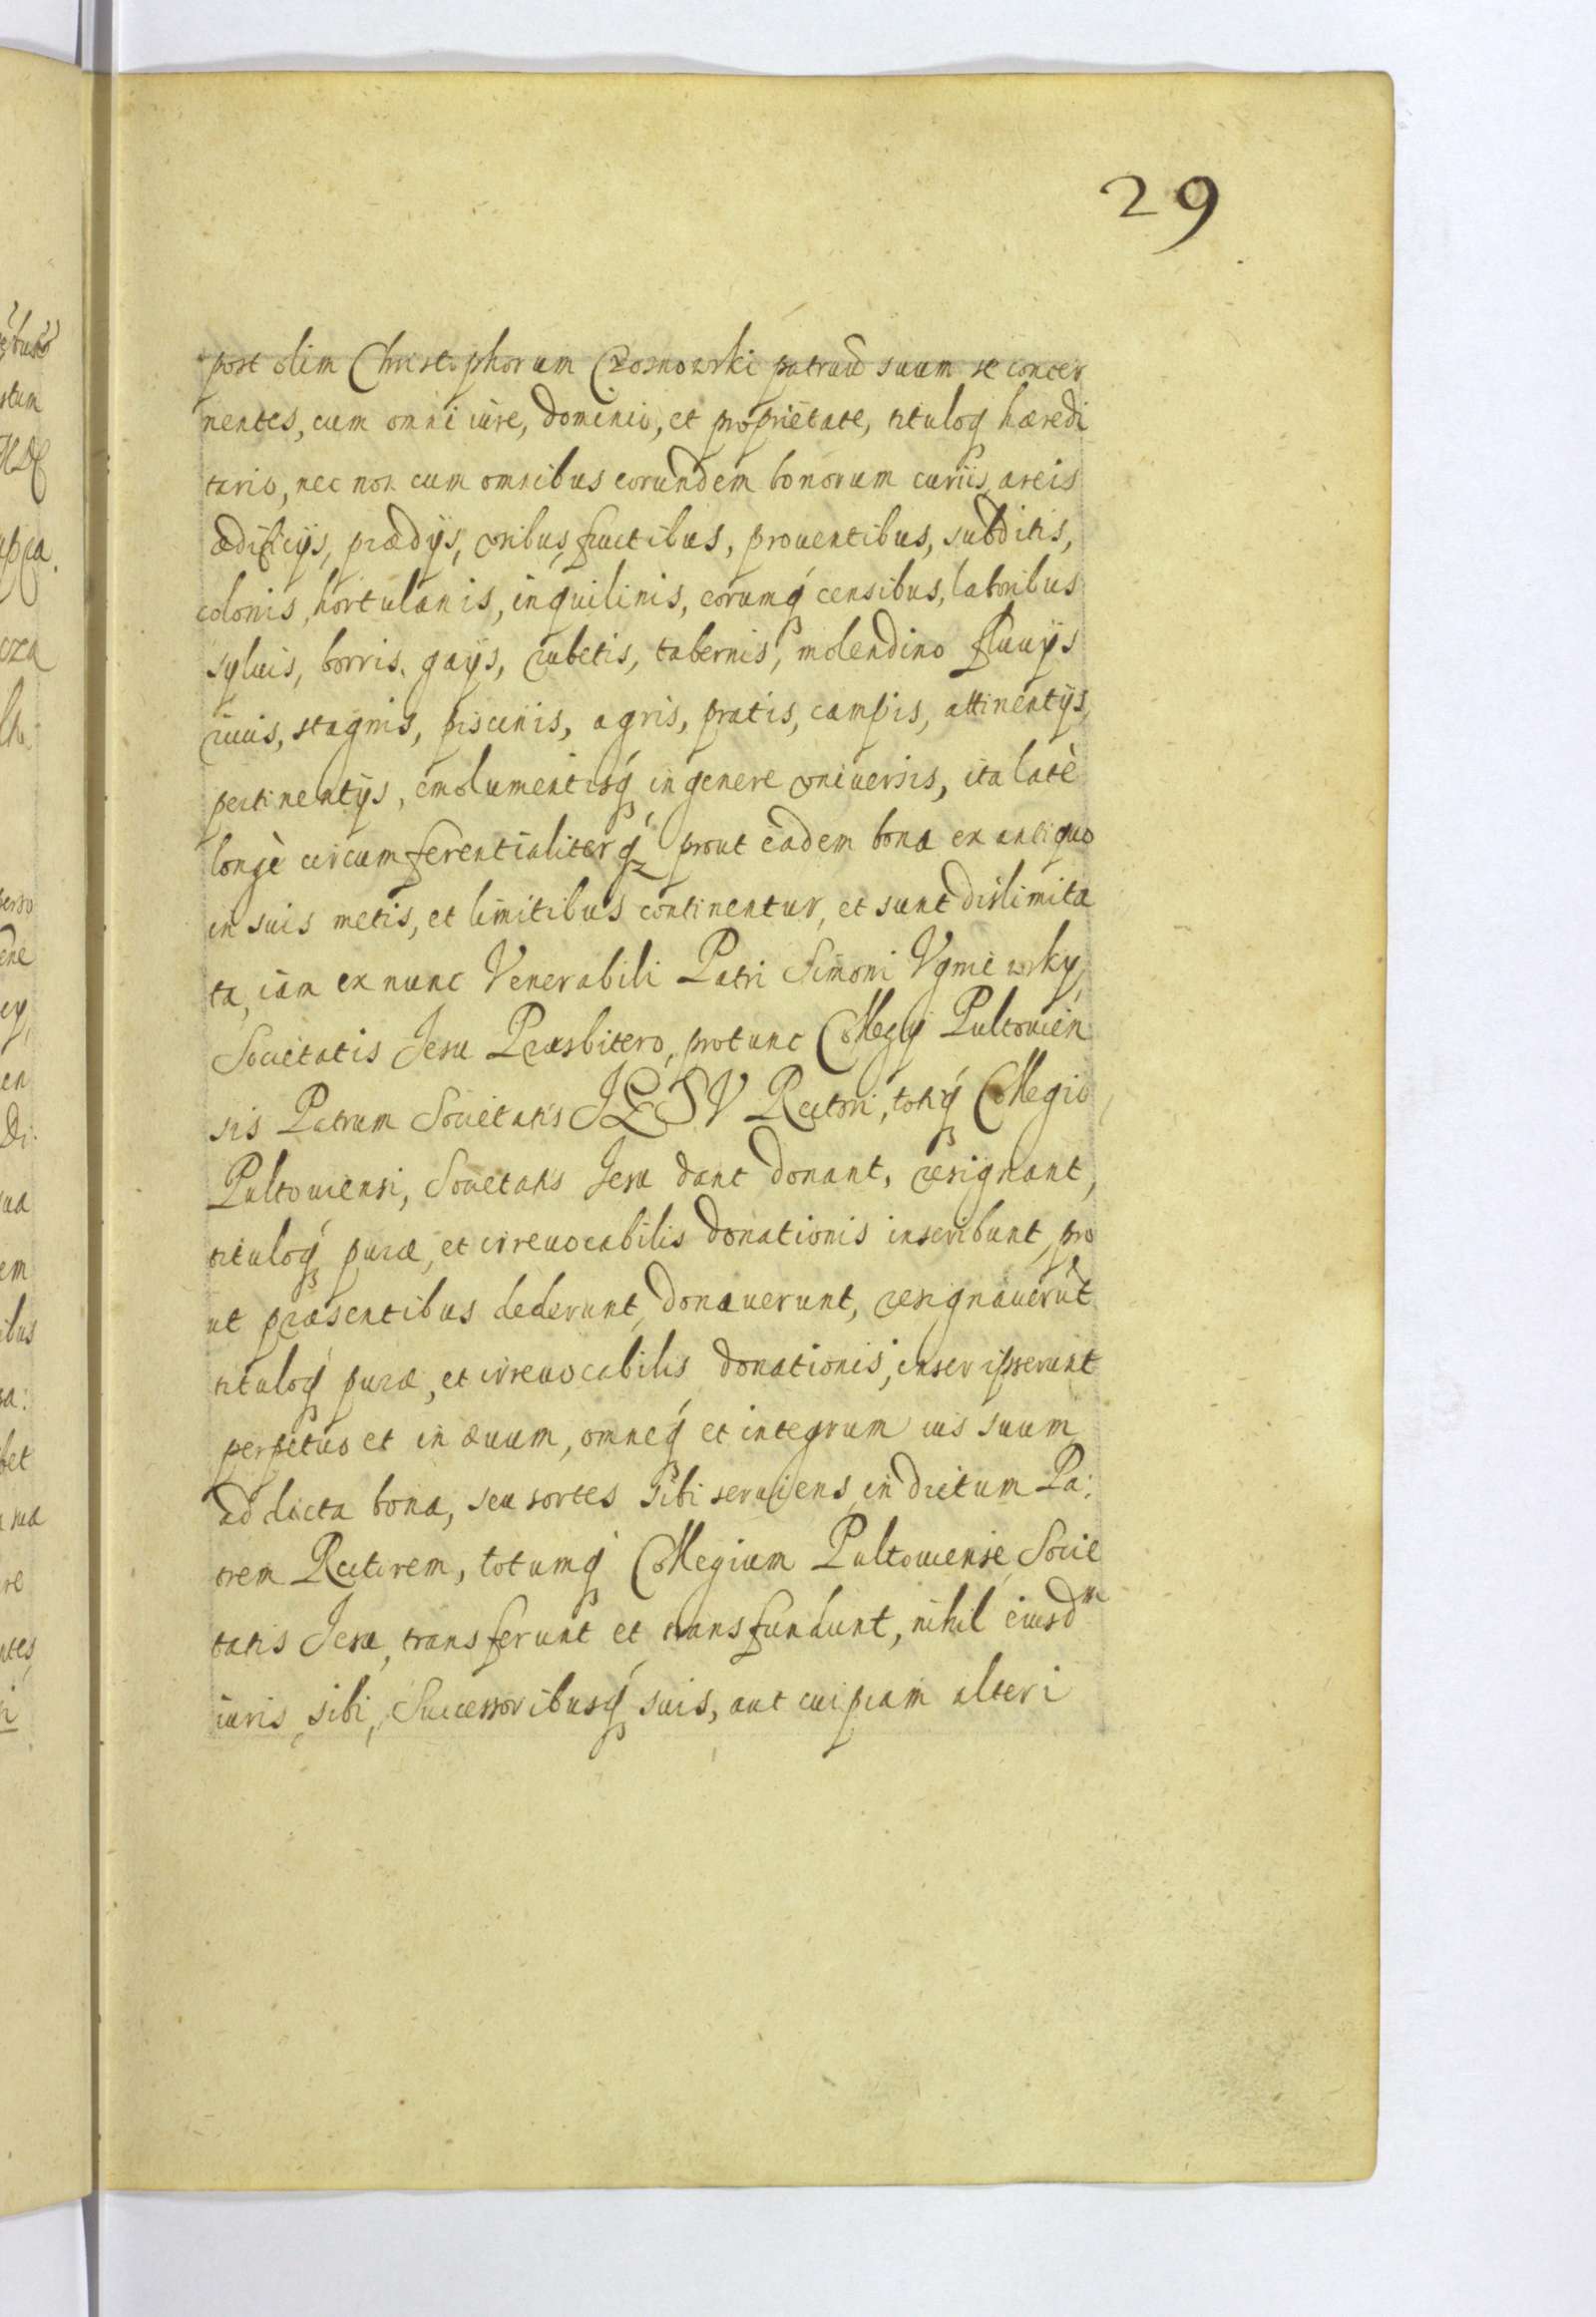 29
post olim Christophorum Czosnowski patruū suum se concer
nentes, cum omni iure, dominio, et proprietate, tituloq́ hæredi
tario, nec non cum omnibus eorundem bonorum curiis, areis
ædificijs, prædijs, vsibus, fructibus, prouentibus, subditis,
colonis, hortulanis, inquilinis, eorumq́ censibus, laboribus
syluis, borris, gays, rubetis, tabernis, molendino fluuijs
riuis, stagnis, piscinis, agris, pratis, campis, attinentijs,
pertinentijs, emolumentisq́ in genere vniuersis, ita latè
longè circumferentialiterq́ prout eadem bona ex antiquo
in suis metis, et limitibus continentur, et sunt dislimita
ta, iam ex nunc Venerabili Patri Simoni Vgniewsky,
Societatis Jesu Præsbitero, protunc Collegij Pultouien
sis Patrum Societatis JESV Rectori, totiq́ Collegio
Pultouiensi, Societatis Jesu dant donant, resignant,
tituloq́ puræ, et irreuocabilis donationis inscribunt, pro
ut præsentibus dederunt, donauerunt, resignauerūt
tituloq́ puræ, et irreuocabilis donationis, inscripserunt
perpetuo et in æuum, omneq́ et integrum ius suum
ad dicta bona, seu sortes sibi seruiens, in dictum Pa:
trem Rectorem, totumq́ Collegium Pultouiense, Socie
tatis Jesu, transferunt et transfundunt, nihil eiusdm
iuris, sibi, Successoribusq́ suis, aut cuipiam alteri